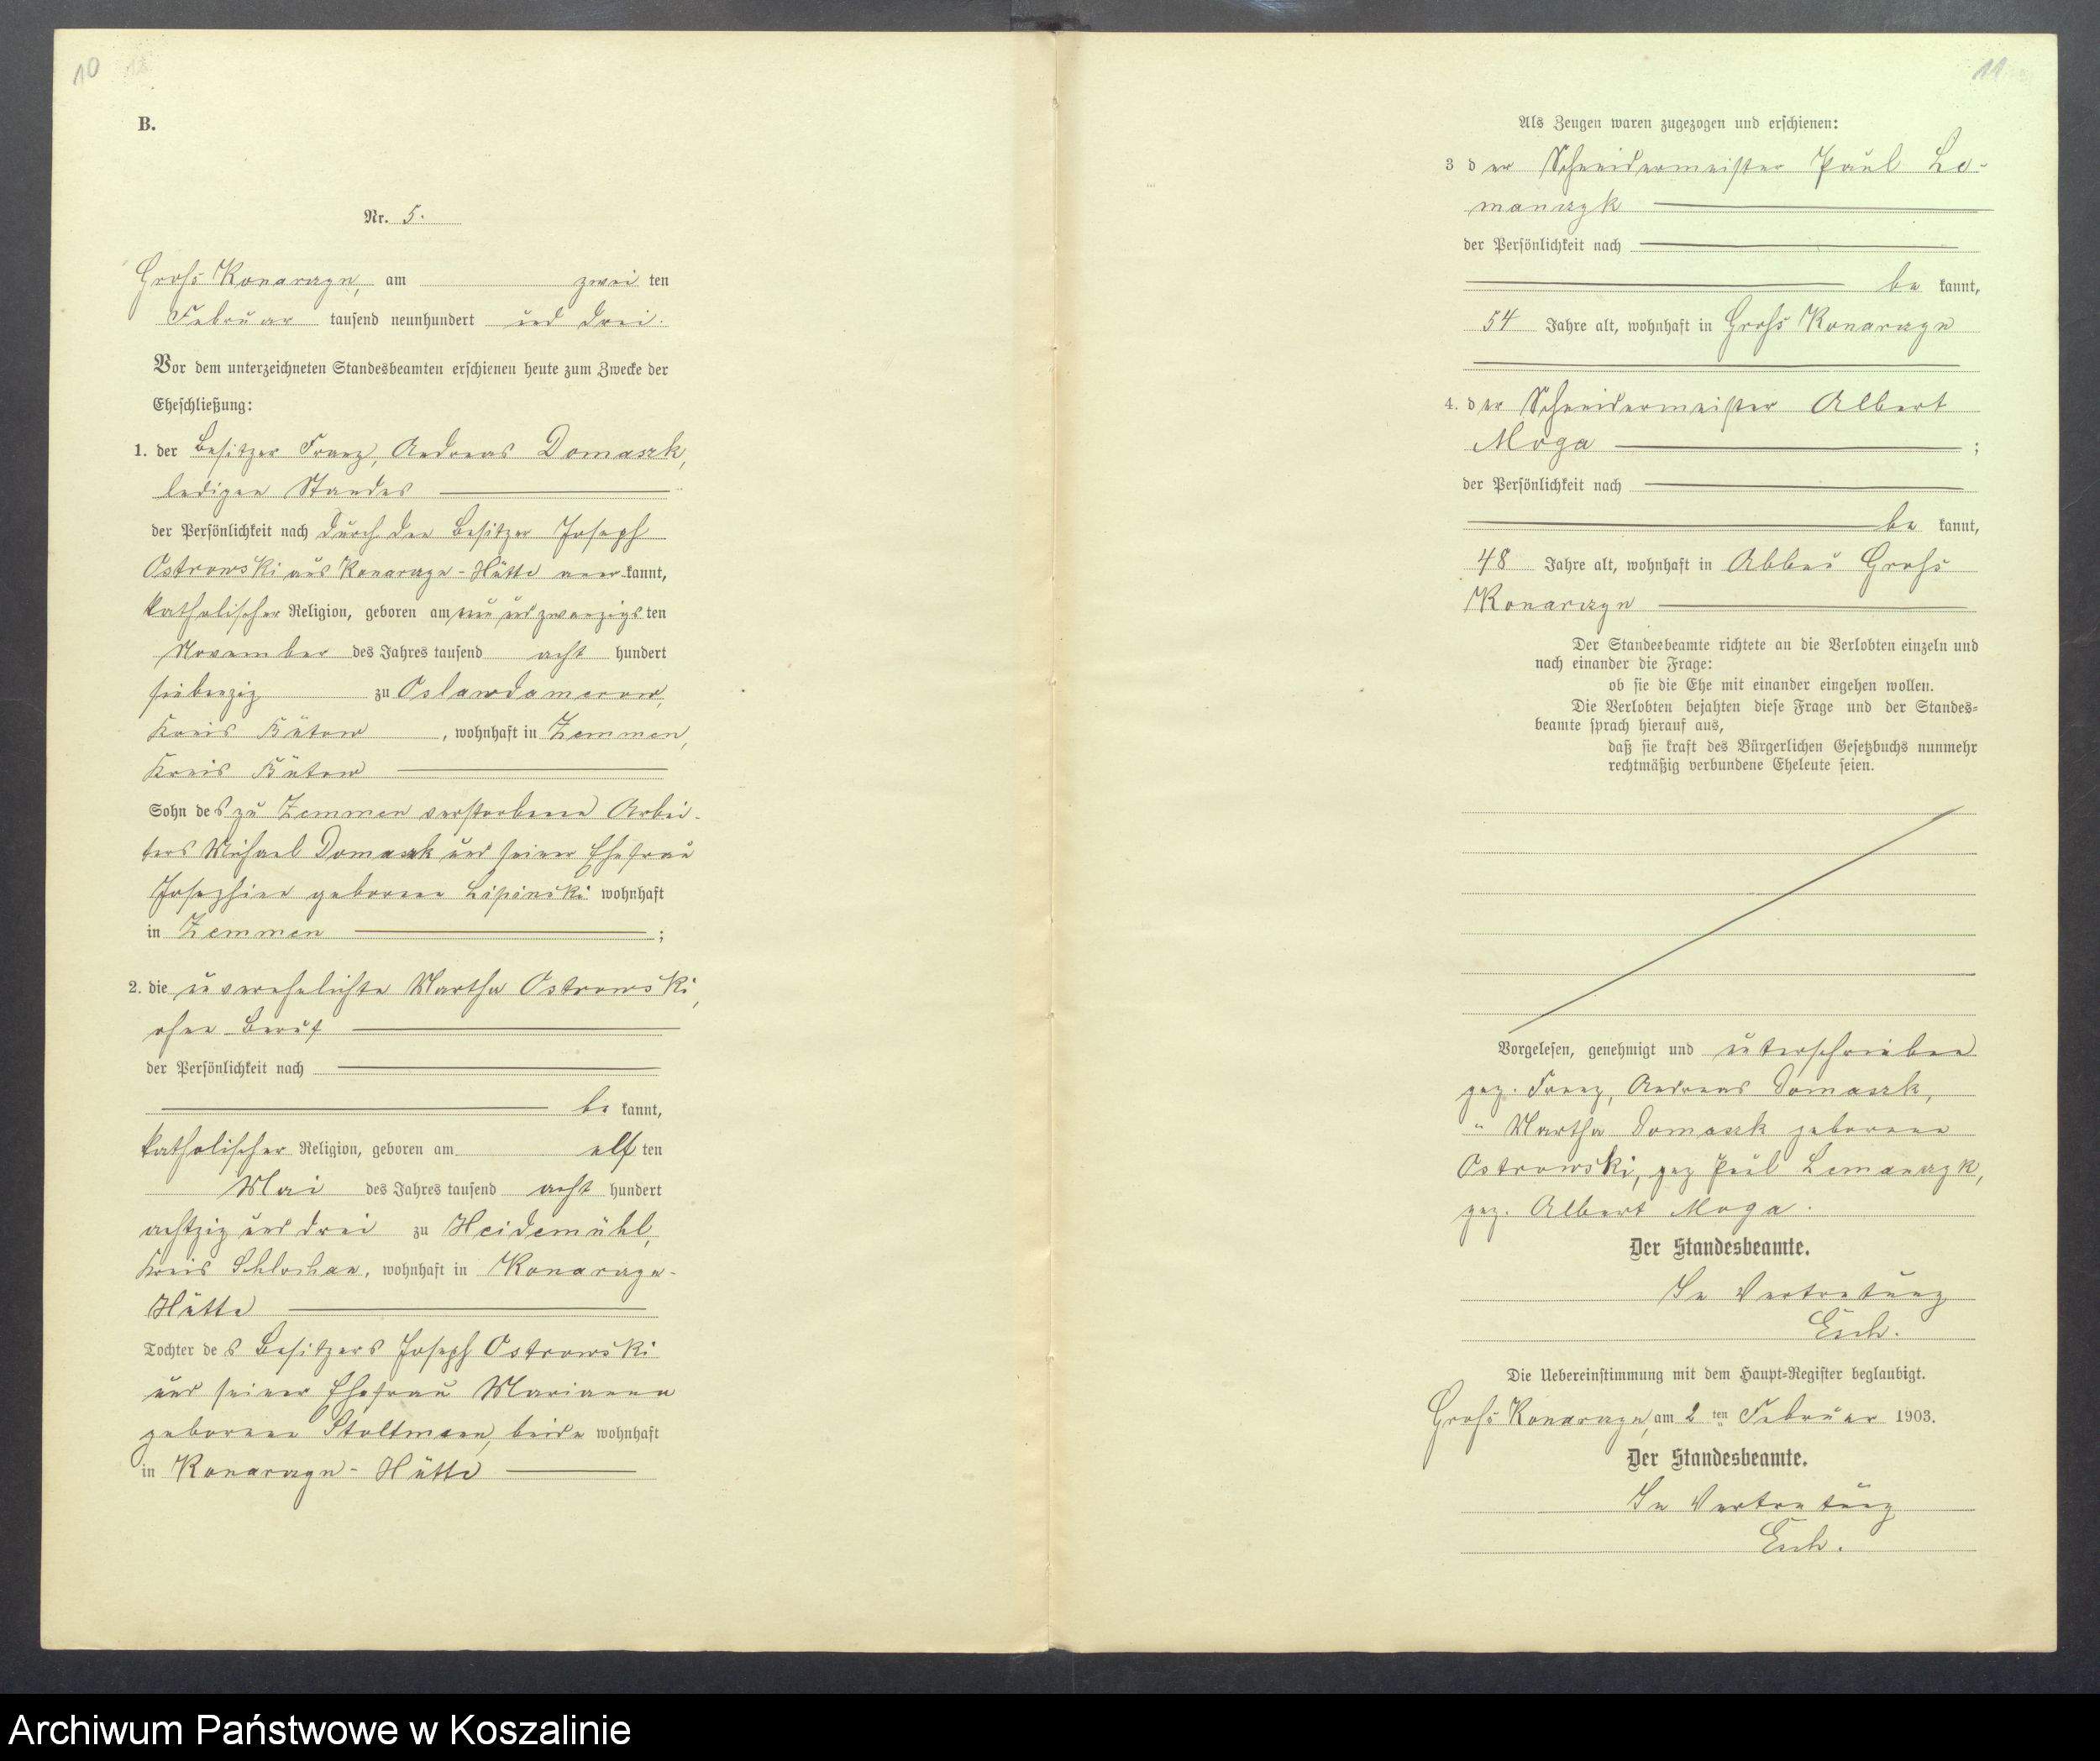 10
B.
Nr. 5.
Groß Konarczyn, am zwei ten
Februar tausend neunhundert und drei.
Vor dem unterzeichneten Standesbeamten erschienen heute zum Zwecke der
Eheschließung:
1. der Besitzer Franz, Andreas Domaszk,
ledigen Standes
der Persönlichkeit nach durch den Besitzer Joseph
Ostrowski aus Konarczyn-Hütte aner kannt,
katholischer Religion, geboren am neun und zwanzigs ten
November des Jahres tausend acht hundert
siebenzig zu Oslawdamerow,
Kreis Bütow, wohnhaft in Zemmen,
Kreis Bütow
Sohn des zu Zemmen verstorbenen Arbei-
ters Michael Domaszk und seiner Ehefrau
Josephine geborene Lipinski wohnhaft
in Zemmen ;
2. die unverehelichte Martha Ostrowski,
ohne Beruf
der Persönlichkeit nach
be kannt,
katholischer Religion, geboren am elf ten
Mai des Jahres tausend acht hundert
achtzig und drei zu Heidemühl,
Kreis Schlochau, wohnhaft in Konarczyn-
Hütte
Tochter des Besitzers Joseph Ostrowski
und seiner Ehefrau Marianna
geborene Stoltmann, beide wohnhaft
in Konarczyn-Hütte
11
Als Zeugen waren zugezogen und erschienen:
3 der Schneidermeister Paul Le-
manczyk
der Persönlichkeit nach
be kannt,
54 Jahre alt, wohnhaft in Groß Konarczyn
4. der Schneidermeister Albert
Moga ;
der Persönlichkeit nach
be kannt,
48 Jahre alt, wohnhaft in Abbau Groß
Konarczyn
Der Standesbeamte richtete an die Verlobten einzeln und
nach einander die Frage:
ob sie die Ehe mit einander eingehen wollen.
Die Verlobten bejahten diese Frage und der Standes-
beamte sprach hierauf aus,
daß sie kraft des Bürgerlichen Gesetzbuchs nunmehr
rechtmäßig verbundene Eheleute seien.
Vorgelesen, genehmigt und unterschrieben
gez. Franz, Andreas Domaszk,
" Martha Domaszk geborene
Ostrowski, gez Paul Lemanczyk,
gez. Albert Moga.
Der Standesbeamte.
In Vertretung
Esch.
Die Uebereinstimmung mit dem Haupt-Register beglaubigt.
Groß Konarczyn, am 2 ten Februar 1903.
Der Standesbeamte.
In Vertretung
Esch.
Archiwum Państwowe w Koszalinie